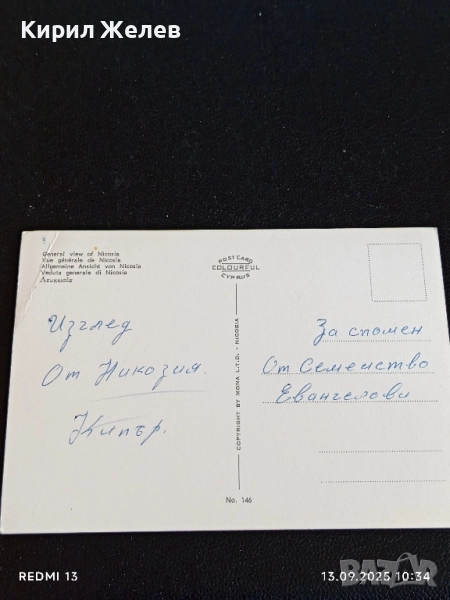 Кирил Желев
General view of Nicosia
Vue générale de Nicosia
Allgemeine Ansicht von Nicosia
Veduta generale di Nicosia
Λευκωσία
POSTCARD
COLOURFUL
CYPRUS
Изглед
От Никозия.
Кипър.
COPYRIGHT BY MONA L.T.D. - NICOSIA
За спомен
От Семейство
Евангелови
No. 146
REDMI 13
13.09.2025 10:34
BAZAR